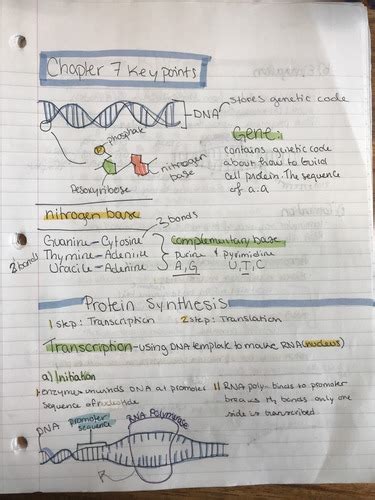 Chapter 7 Key points
DNA
stores genetic code
phosphate
nitrogen
base
Desoxyribose
Gene:
contains genetic code
about how to build
cell protein. The sequence
of a.a
nitrogen base
3 bonds
Guanine-Cytosine
Thymine-Adenine
Uracile-Adenine
2 bonds
complementary base
purine & pyrimidine
A,G U,T,C
Protein Synthesis
1 step: Transcription 2 step: Translation
Transcription-using DNA template to make RNA(nucleus)
a) Initiation
enzyme unwinds DNA at promoter
sequence of nucleotide
RNA poly- binds to promoter
breaks H bonds only one
side is transcribed
DNA
promoter
sequence
RNA Polymerase